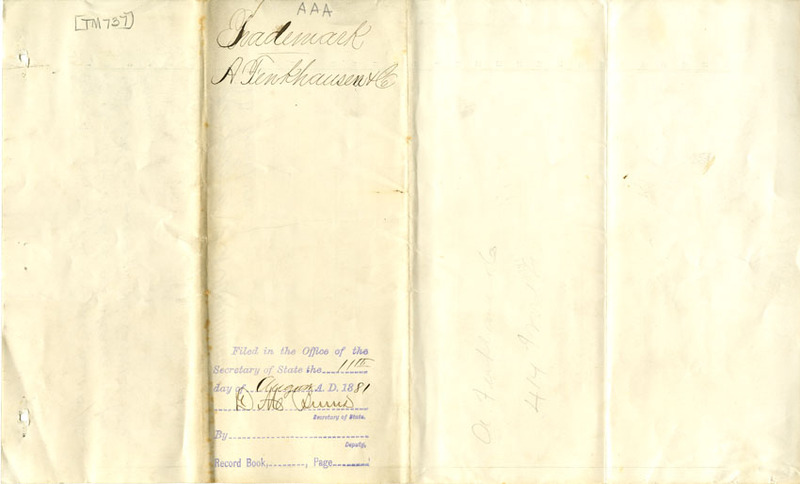 [TM737]
AAA
Trademark
A Fenkhausen & Co
Filed in the Office of the
Secretary of State the 11th
day of August A. D. 1881
Secretary of State.
By
Deputy,
Record Book, , Page
414